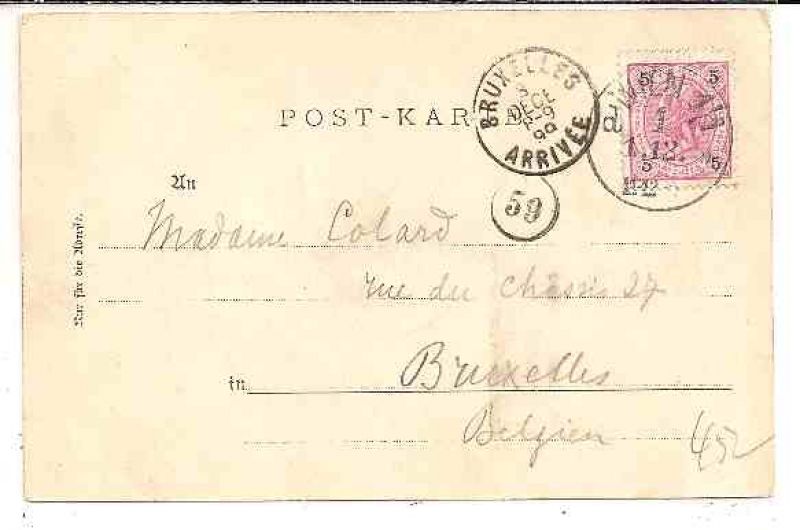 POST-KARTE
BRUXELLES
3
DECE
99
ARRIVÉE
5 5
5 5
WIEN
1
1.12.
59
An
Madame Colard
rue du Châssis 27
in Bruxelles
Belgien
452
Nur für die Adresse.